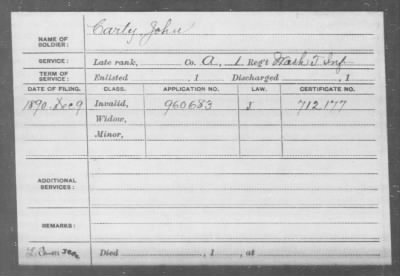 NAME OF SOLDIER: Carly, John
SERVICE: Late rank, Co. A, 1 Reg't Wash T. Inf.
TERM OF SERVICE: Enlisted , 1 Discharged , 1
DATE OF FILING. CLASS. APPLICATION NO. LAW. CERTIFICATE NO.
1890. Dec 9 Invalid, 960683 J 712.177
Widow,
Minor,
ADDITIONAL SERVICES:
REMARKS:
Died , 1 , at